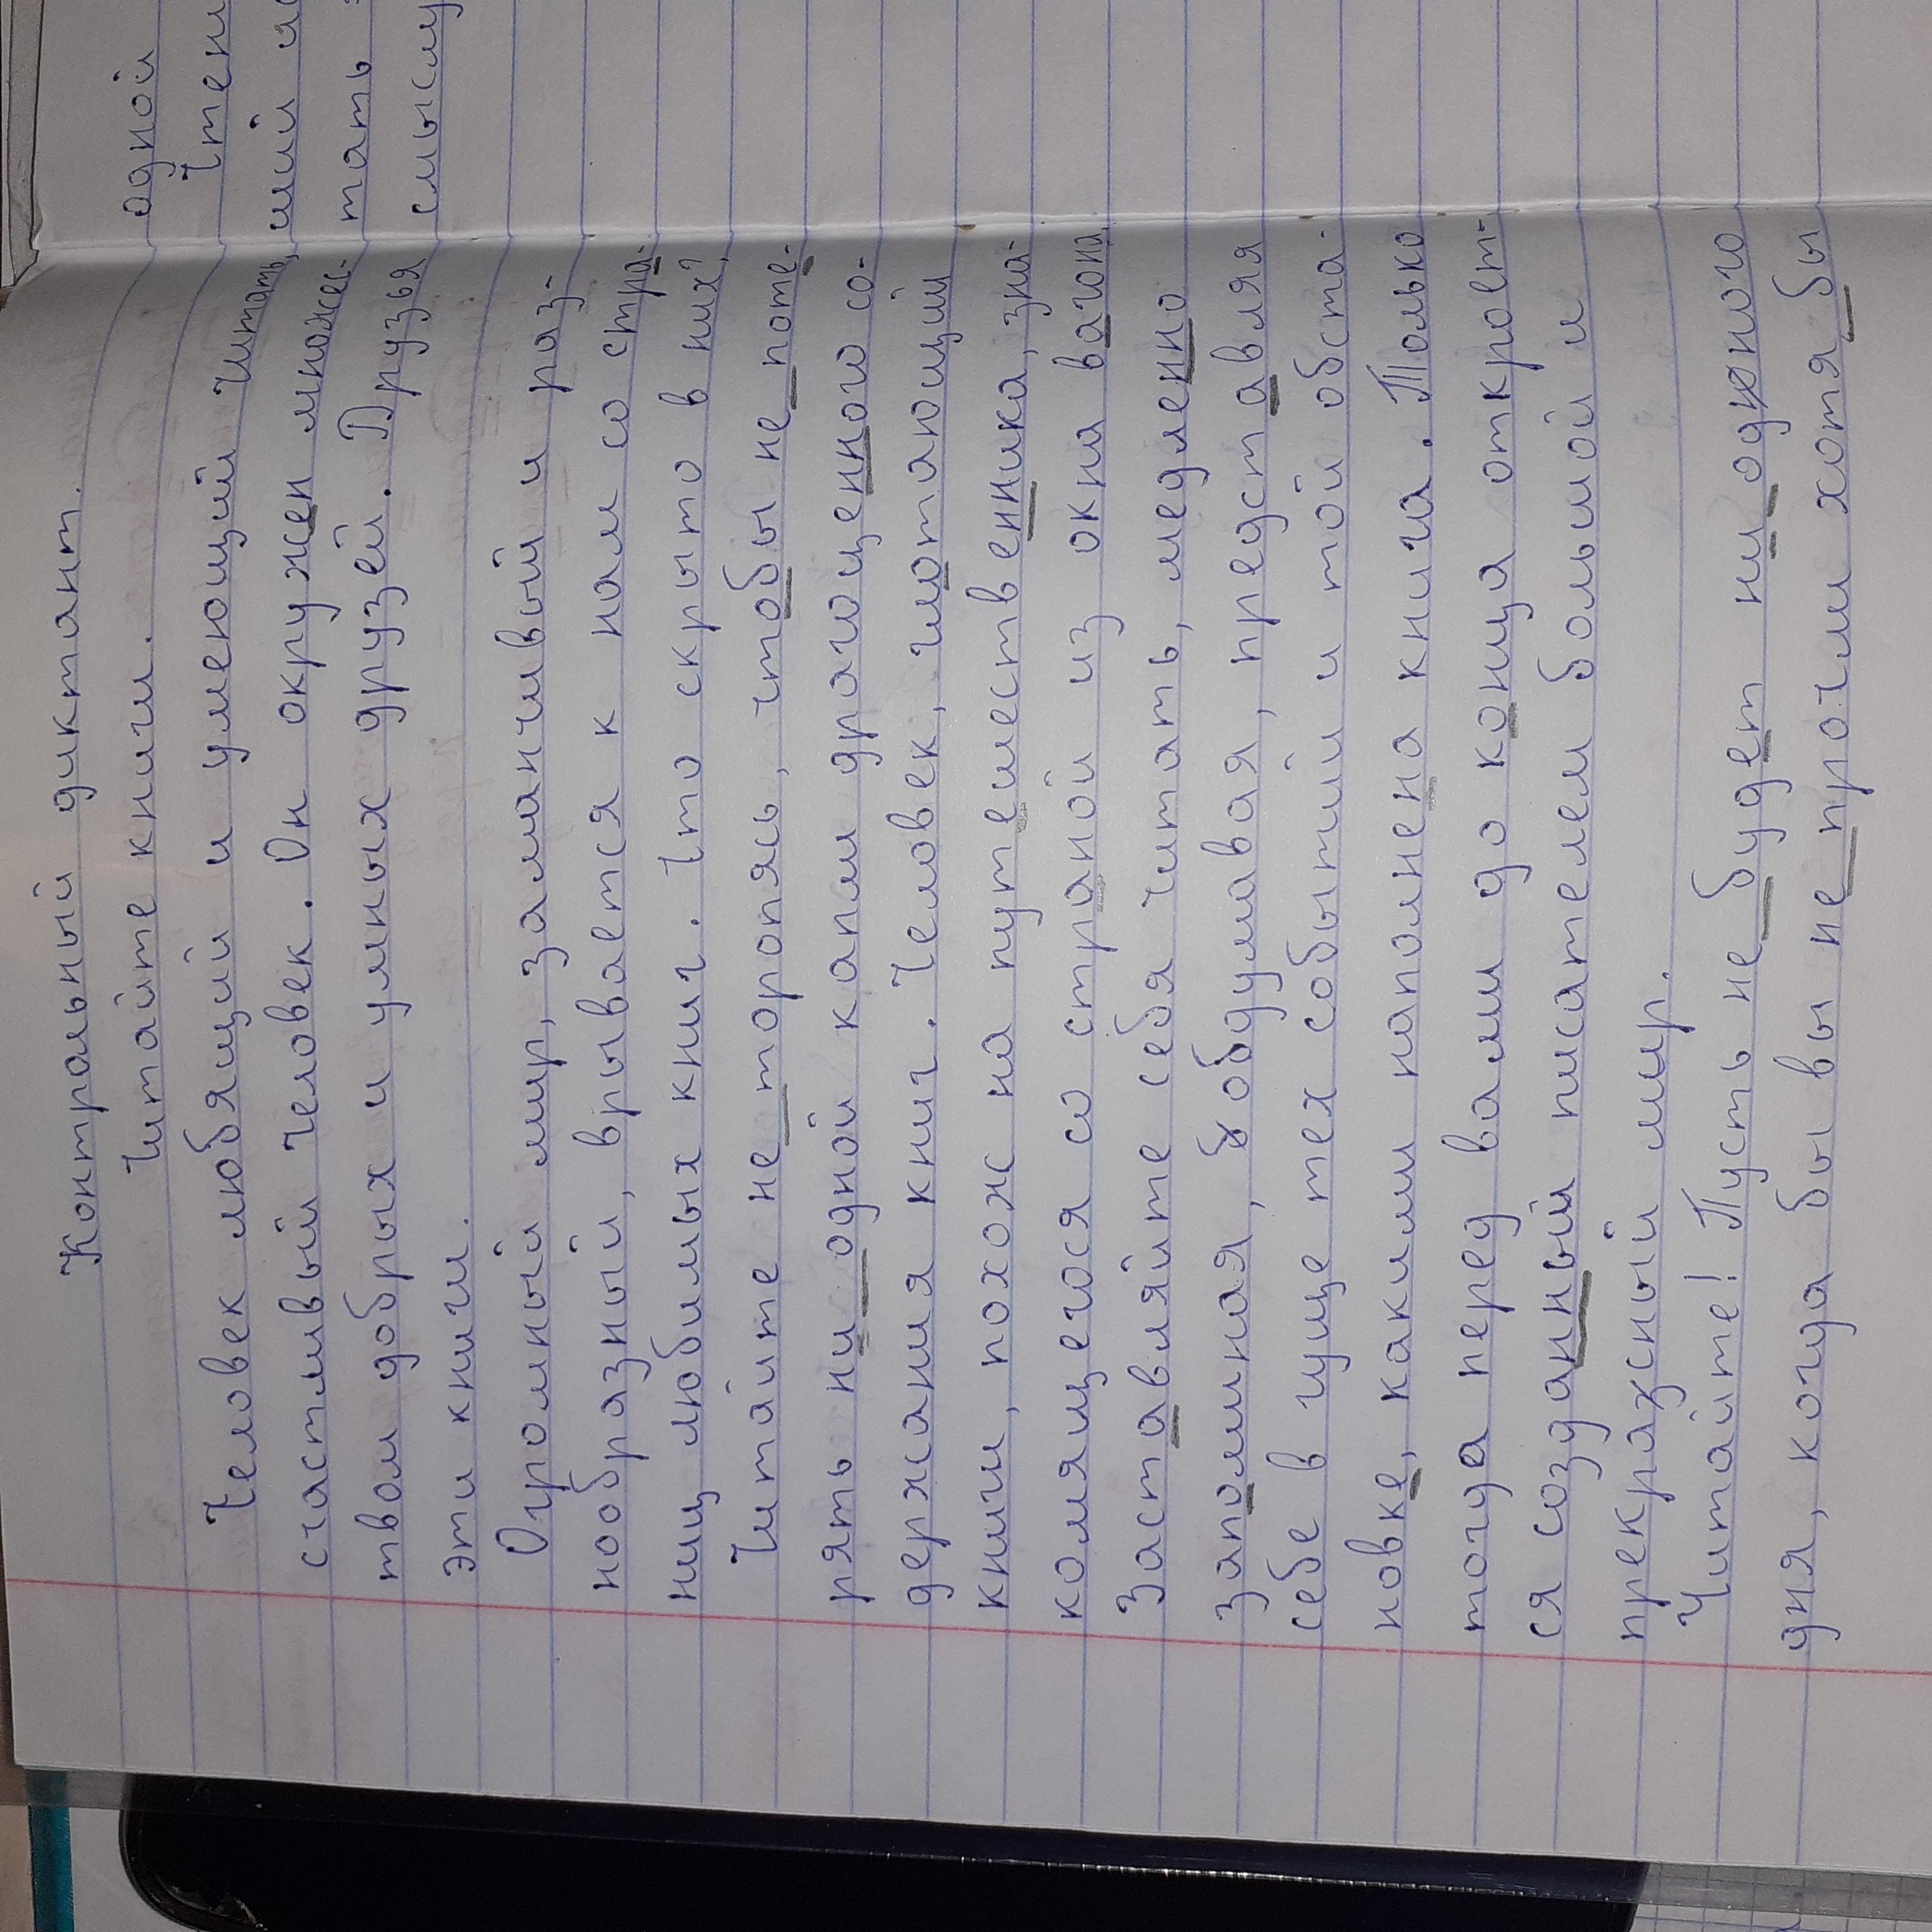 Контрольный диктант.
Читайте книги.
Человек любящий и умеющий читать,
счастливый человек. Он окружен множес-
твом добрых и умных друзей. Друзья
эти книги.
Огромный мир, заманчивый и раз-
нообразный, врывается к нам со стра-
ниц любимых книг. Что скрыто в них?
Читайте не торопясь, чтобы не поте-
рять ни одной капли драгоценного со-
держания книг. Человек, глотающий
книги, похож на путешественника, зна-
комящегося со страной из окна вагона.
Заставляйте себя читать, медленно
запоминая, обдумывая, представляя
себе в гуще тех событий и той обста-
новке, какими наполнена книга. Только
тогда перед вами до конца откроет-
ся созданный писателем большой и
прекражсный мир.
Читайте! Пусть не будет ни одного
дня, когда бы вы не прочли хотя бы
одной
Чтени
ший и
тать
смыслу